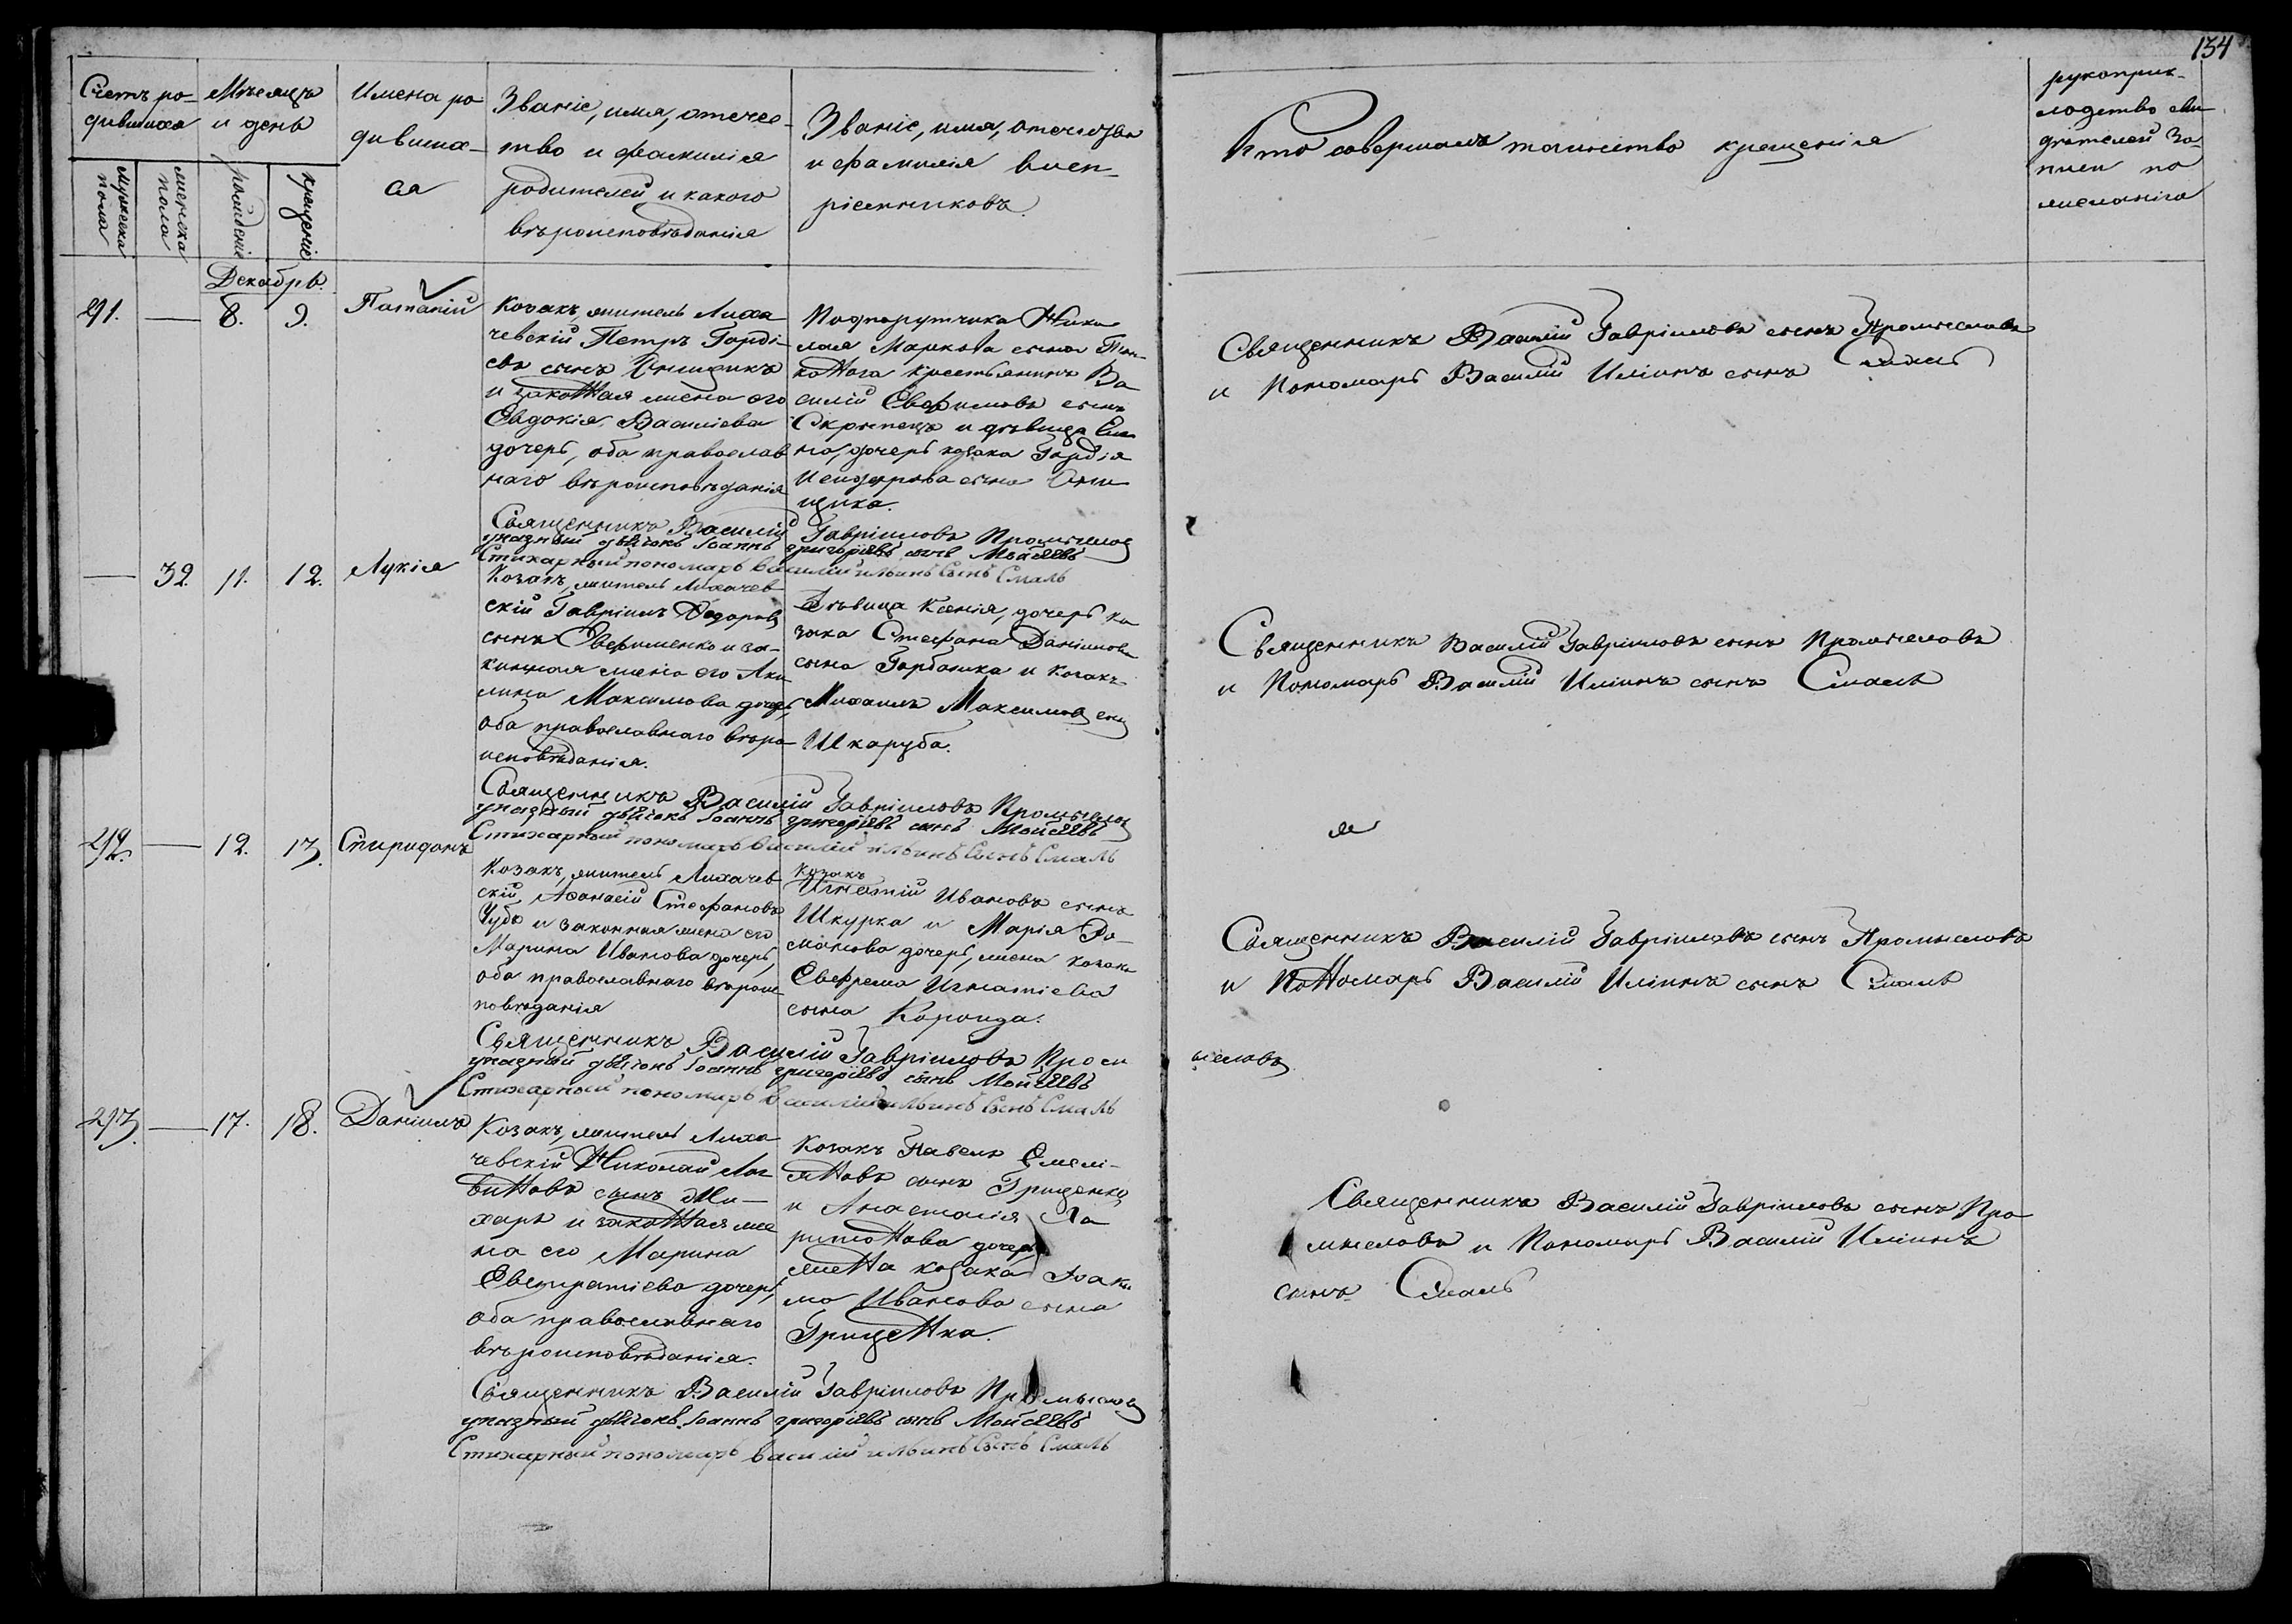 134
Счетъ ро-
дившихся
Мѣсяцъ
и день
Имена ро
дивших-
ся
Званіе, имя, отечес-
тво и фамилія
родителей и какого
вѣроисповѣданія
Званіе, имя, отечество
и фамилія восп-
ріемниковъ.
Кто совершалъ таинство крещенія
рукоприк-
ладство сви
дѣтелей За-
писи по
желанію
мужеска
пола
женска
пола
рожденіе
крещеніе
Декабрь.
291. — 8. 9. Патапій
Козакъ, житель Лиха
чевскій Петръ Горді-
евъ сынъ Онищикъ
и законная жена его
Евдокія Василіева
дочерь, оба православ
наго вѣроисповѣданія
Подпорутчика Нико
лая Маркова сына
крестьянинъ Ва
силій Евфимовъ сынъ
Скрыпецъ и дѣвица
дочерь козака Гордія
Исидорова сына Они
щика.
Священникъ Василій Гавріиловъ сынъ Промысловъ
и Пономарь Василій Иліинъ сынъ Смаль
Священникъ Василій Гавріиловъ Промысловъ
указный дьячокъ Іоаннъ григоріевъ сынъ Моисеевъ
Стихарный пономарь василій ильинъ Сынъ Смаль
— 32. 11. 12. Лукія
Козакъ, житель Лихачев-
скій Гавріилъ Ѳедоровъ
сынъ Ефименко и за-
конная жена его Аки
лина Максимова дочерь,
оба православнаго вѣро
исповѣданія.
Дѣвица Ксенія, дочерь ко
зака Стефана Даніилова
сына Горбаника и Козакъ
Михаилъ Максимовъ сынъ
Шкаруба.
Священникъ Василій Гавріиловъ сынъ Промысловъ
и Пономарь Василій Иліинъ сынъ Смаль
Священникъ Василій Гавріиловъ Промысловъ
указный дьячокъ Іоаннъ григоріевъ сынъ Моисеевъ
Стихарный пономарь василій ильинъ Сынъ Смаль
292. — 12. 13. Спиридонъ
Козакъ, житель Лихачев
скій, Аѳанасій Стефановъ
Чубъ и законная жена его
Марина Иванова дочерь,
оба православнаго вѣроис
повѣданія
Козакъ
Игнатій Ивановъ сынъ
Шкурка и Марія Ро-
манова дочерь, жена козака
Евфрема Игнатіева
сына Короида.
Священникъ Василій Гавріиловъ сынъ Промысловъ
и Пономарь Василій Иліинъ сынъ Смаль
Священникъ Василій Гавріиловъ Пром
ысловъ
указный дьячокъ Іоаннъ григоріевъ сынъ Моисеевъ
Стихарный пономарь василій ильинъ Сынъ Смаль
293. — 17. 18. Даніилъ
Козакъ, житель Лиха
чевскій Николай Лог
виновъ сынъ Ли-
харь и законная же
на его Марина
Евстратіева дочерь,
оба православнаго
вѣроисповѣданія.
Козакъ Павелъ Емелі-
яновъ сынъ Грищенко
и Анастасія Ла
ріонова дочерь,
жена козака Іоаки
ма Иванова сына
Грищенка.
Священникъ Василій Гавріиловъ сынъ Про
мысловъ и Пономарь Василій Иліинъ
сынъ Смаль
Священникъ Василій Гавріиловъ Промысловъ
указный дьячокъ Іоаннъ григоріевъ сынъ Моисеевъ
Стихарный пономарь василій ильинъ Сынъ Смаль